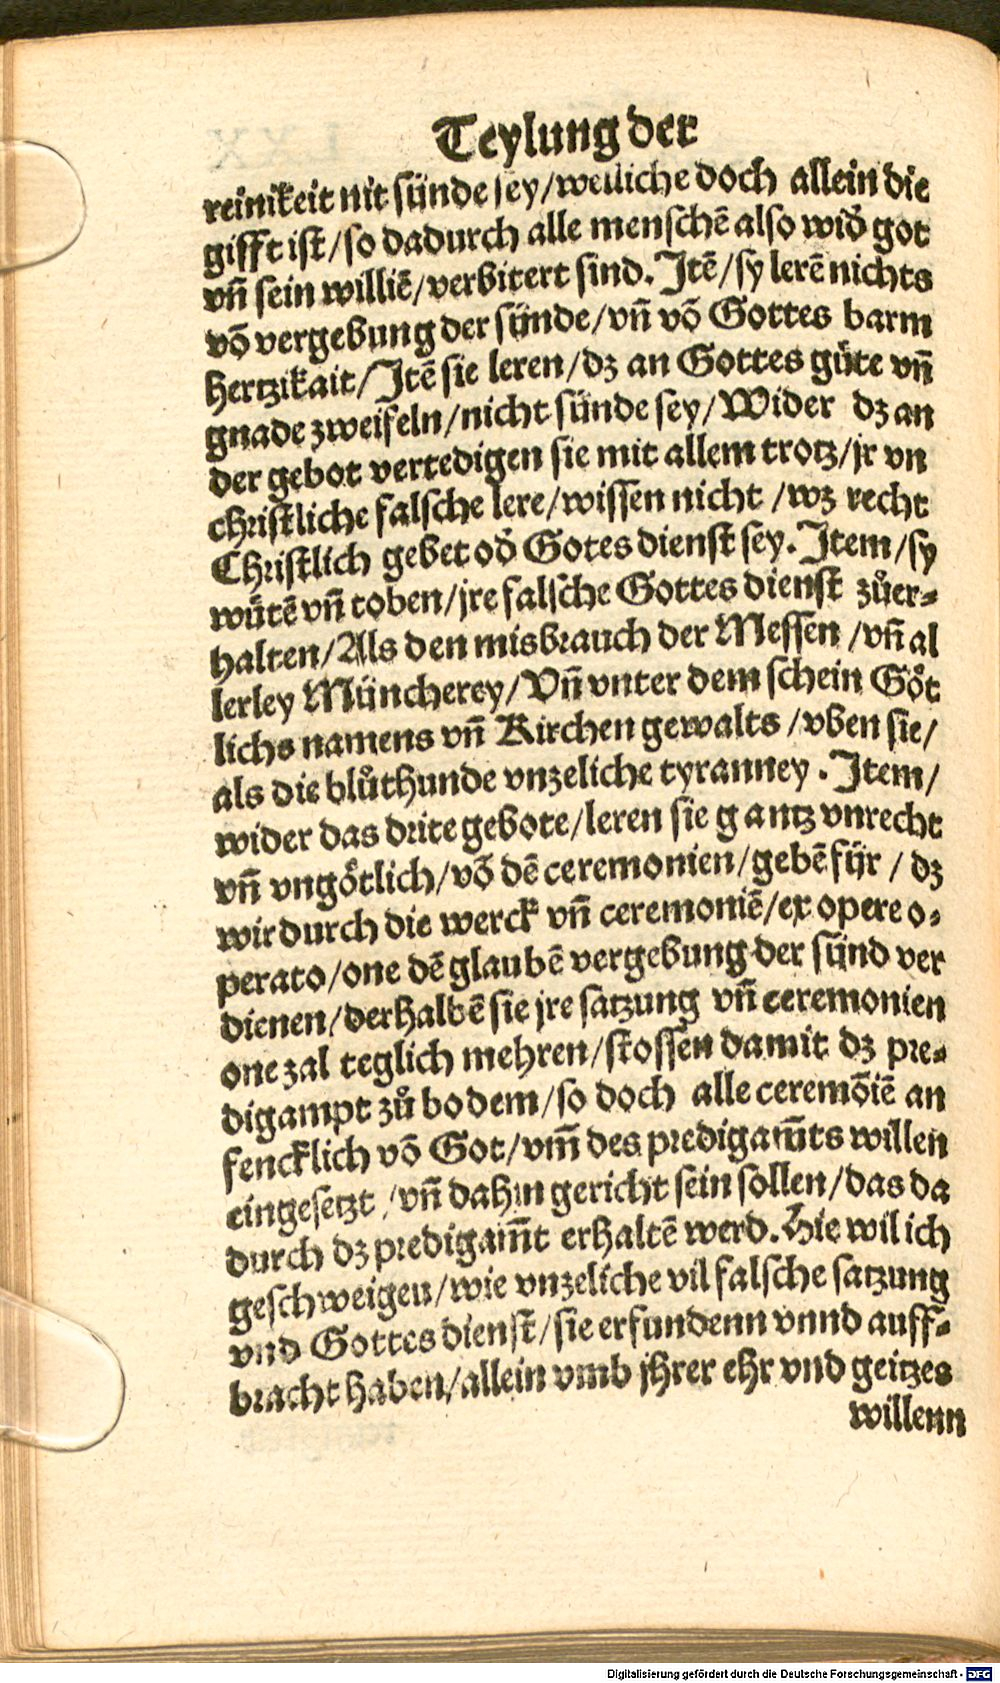 Teylung der
reinikeit nit sünde sey/welliche doch allein die
gifft ist/so dadurch alle menschē also wid̕ got
vn̄ sein willē/verbitert sind. Itē/sy lerē nichts
vō vergebung der sünde/vn̄ vō Gottes barm
hertzikait/Itē sie leren/dz an Gottes gůte vn̄
gnade zweifeln/nicht sünde sey/Wider dz an
der gebot vertedigen sie mit allem trotz/jr vn
christliche falsche lere/wissen nicht /wz recht
Christlich gebet od̕ Gotes dienst sey. Item/sy
wůtē vn̄ toben/jre falsche Gottes dienst zůer-
halten/Als den misbrauch der Messen /vn̄ al
lerley Müncherey/Vn̄ vnter dem schein Gőt
lichs namens vn̄ Kirchen gewalts /vben sie/
als die blůthunde vnzeliche tyranney . Item/
wider das drite gebote/leren sie gantz vnrecht
vn̄ vngőtlich/vō dē ceremonien/gebē für / dz
wir durch die werck vn̄ ceremoniē/ex opere o-
perato/one dē glaubē vergebung der sünd ver
dienen/derhalbē sie jre satzung vn̄ ceremonien
one zal teglich mehren/stossen damit dz pre-
digampt zů bodem/so doch alle ceremōiē an
fencklich vō Got/vm̄ des predigam̄ts willen
eingesetzt /vn̄ dahin gericht sein sollen/das da
durch dz predigam̄t erhaltē werd. Hie wil ich
geschweigen/wie vnzeliche vil falsche satzung
vnd Gottes dienst/sie erfundenn vnnd auff-
bracht haben/allein vmb jhrer ehr vnd geitzes
willenn
Digitalisierung gefördert durch die Deutsche Forschungsgemeinschaft - DFG